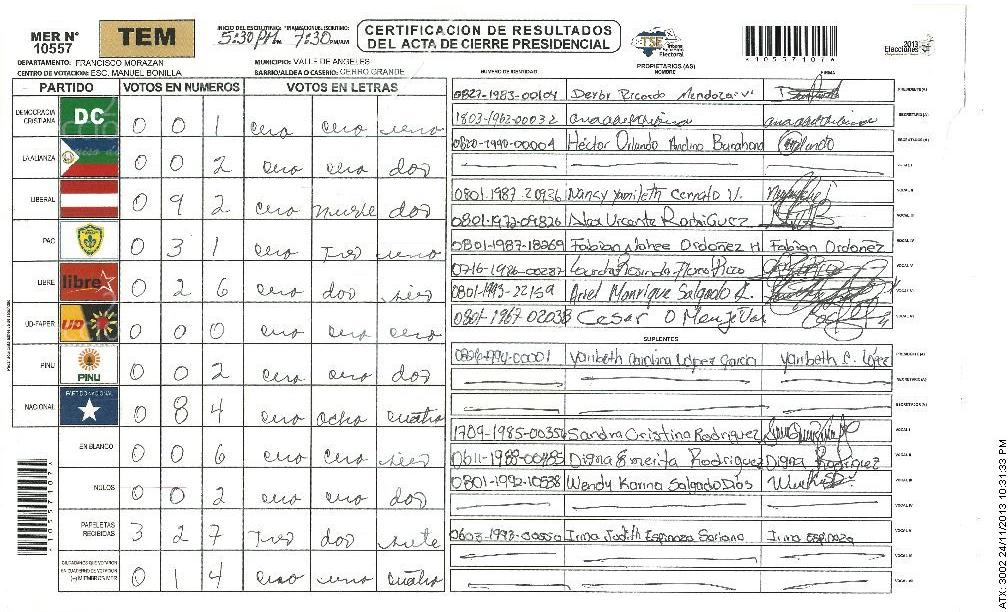 MER N° 10557
TEM
INICIO DEL ESCRUTINIO: 5:30 PM
7:30 PM/AM
CERTIFICACION DE RESULTADOS
DEL ACTA DE CIERRE PRESIDENCIAL
TSE Tribunal Supremo Electoral
2013 Elecciones
*10557107*
DEPARTAMENTO: FRANCISCO MORAZAN
MUNICIPIO: VALLE DE ANGELES
CENTRO DE VOTACION: ESC. MANUEL BONILLA
BARRIO/ALDEA O CASERIO: CERRO GRANDE
NUMERO DE IDENTIDAD
PROPIETARIOS (AS)
NOMBRE
FIRMA
PARTIDO VOTOS EN NUMEROS VOTOS EN LETRAS
DEMOCRACIA CRISTIANA DC 0 0 1 cero cero uno
LA ALIANZA 0 0 2 cero cero dos
LIBERAL 0 9 2 cero nueve dos
PAC 0 3 1 cero tres uno
LIBRE libre 0 2 6 cero dos seis
UD-FAPER UD 0 0 0 cero cero cero
PINU PINU 0 0 2 cero cero dos
NACIONAL PARTIDO NACIONAL 0 8 4 cero ocho cuatro
EN BLANCO 0 0 6 cero cero seis
NULOS 0 0 2 cero cero dos
PAPELETAS RECIBIDAS 3 2 7 Tres dos siete
CIUDADANOS QUE VOTARON EN CUADERNO DE VOTACION (+) MIEMBROS MER 0 1 4 cero uno cuatro
0827-1983-00104 Ricardo Mendoza PRESIDENTE (A)
1803-1962-00032 SECRETARIO (A)
0820-1990-00004 Héctor Orlando Andino Barahona Orlando ESCRUTADOR (A)
VOCAL I
0801-1987-20936 Nancy Yamileth Cerrato H. VOCAL II
0801-1972-09826 Alex Vicente Rodriguez VOCAL III
0801-1987-18269 Fabian Nahee Ordoñez H Fabian Ordoñez VOCAL IV
0716-1986-00287 VOCAL V
0801-1993-22159 Ariel Manrique Salgado VOCAL VI
0801-1967-02038 Cesar O Menjivar
SUPLENTES
Yaribeth Carolina López Garcia Yaribeth C. López PRESIDENTE (A)
SECRETARIO (A)
ESCRUTADOR (A)
1709-1985-00356 Sandra Cristina Rodriguez VOCAL I
0611-1988-00485 Digna Emerita Rodriguez Digna Rodriguez VOCAL II
0801-1992-10538 Wendy Karina Salgado Dios VOCAL III
VOCAL IV
0603-1993-00550 Irma Judith Espinoza Soriano Irma Espinoza VOCAL V
VOCAL VI
*10557107*
ATX-3002 24/11/2013 10:31:33 PM